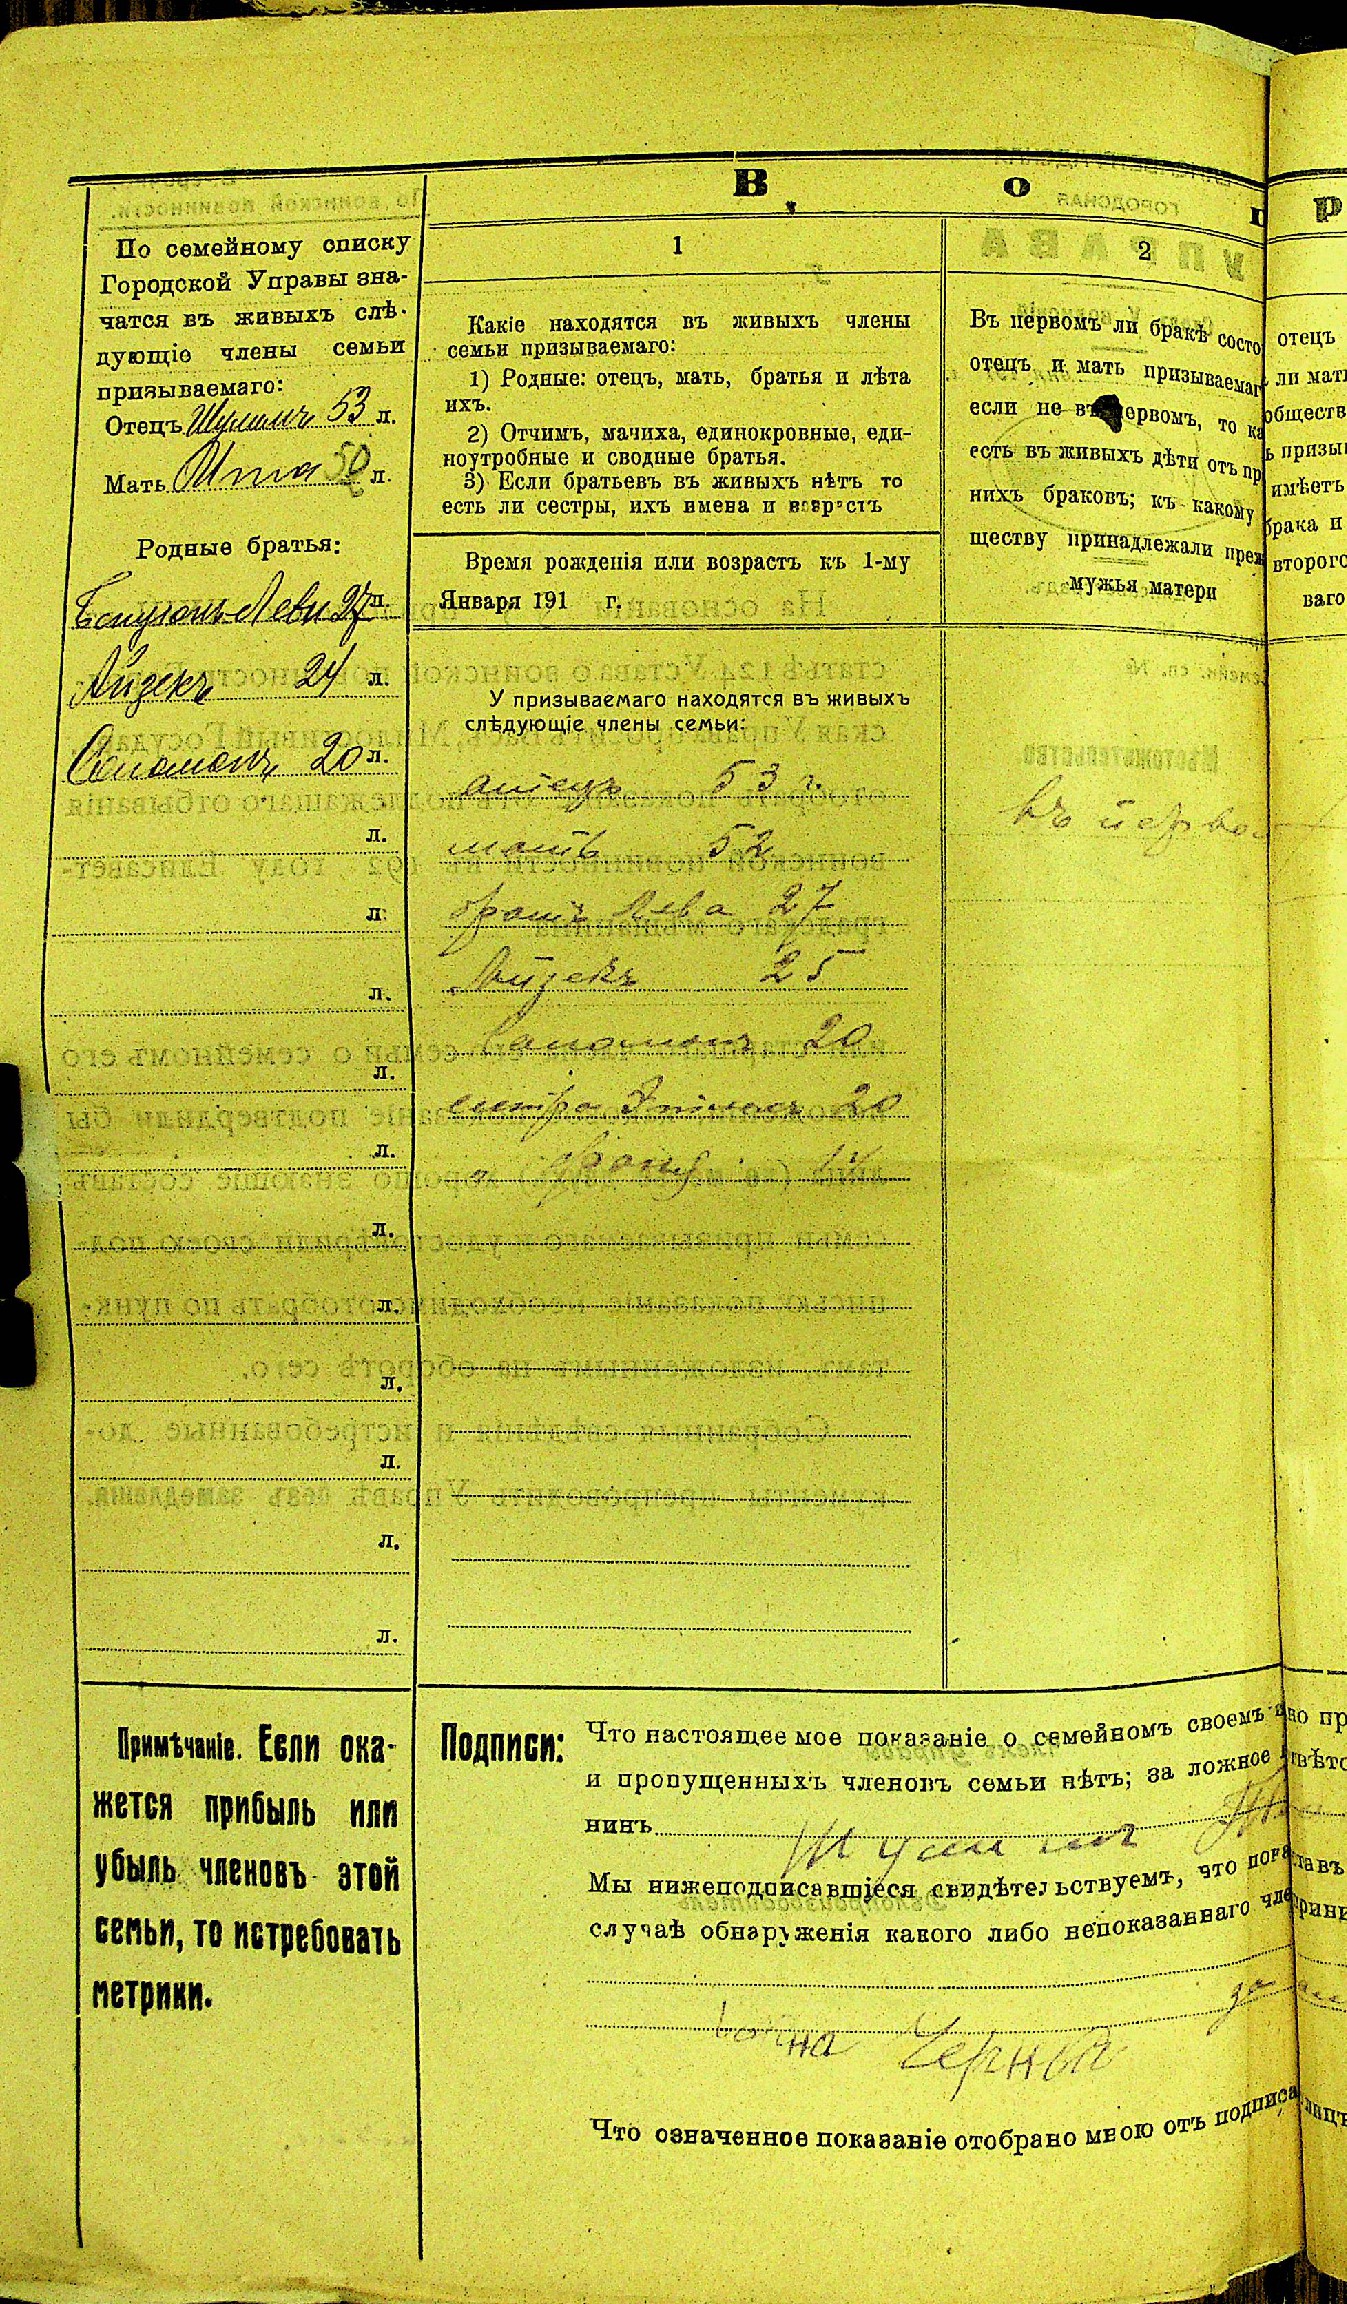 В о п р
По семейному списку
Городской Управы зна-
чатся въ живыхъ слѣ-
дующіе члены семьи
призываемаго:
Отецъ Шулимъ 53 л.
Мать 50 л.
Родные братья:
Леви 27 л.
Айзекъ 24 л.
Соломонъ 20 л.
л.
л.
л.
л.
л.
л.
л.
л.
л.
л.
л.
Примѣчаніе. Если ока-
жется прибыль или
убыль членовъ этой
семьи, то истребовать
метрики.
1
Какіе находятся въ живыхъ члены
семьи призываемаго:
1) Родные: отецъ, мать, братья и лѣта
ихъ.
2) Отчимъ, мачиха, единокровные, еди-
ноутробные и сводные братья.
3) Если братьевъ въ живыхъ нѣтъ то
есть ли сестры, ихъ имена и возрастъ
Время рожденія или возрастъ къ 1-му
Января 191 г.
У призываемаго находятся въ живыхъ
слѣдующіе члены семьи:
отецъ 53 г.
мать 52
братъ Лева 27
Айзекъ 25
Соломонъ 20
сестра 20
2
Въ первомъ ли бракѣ состо
отецъ и мать призываемаг
если не въ первомъ, то ка
есть въ живыхъ дѣти отъ пр
нихъ браковъ; къ какому
ществу принадлежали преж
мужья матери
въ перво
отецъ
ли мать
обществ
ь призы
имѣетъ
брака и
второго
ваго
Подписи:
Что настоящее мое показаніе о семейномъ своемъ но пр
и пропущенныхъ членовъ семьи нѣтъ; за ложное вѣтс
нинъ Шулимъ
Мы нижеподписавшіеся свидѣтельствуемъ, что пока ставъ
случаѣ обнаруженія какого либо непоказаннаго чле прини
за
Что означенное показаніе отобрано мною отъ подписа лицъ